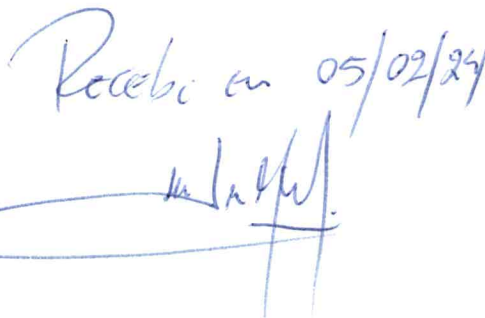 Recebi em 05/02/24